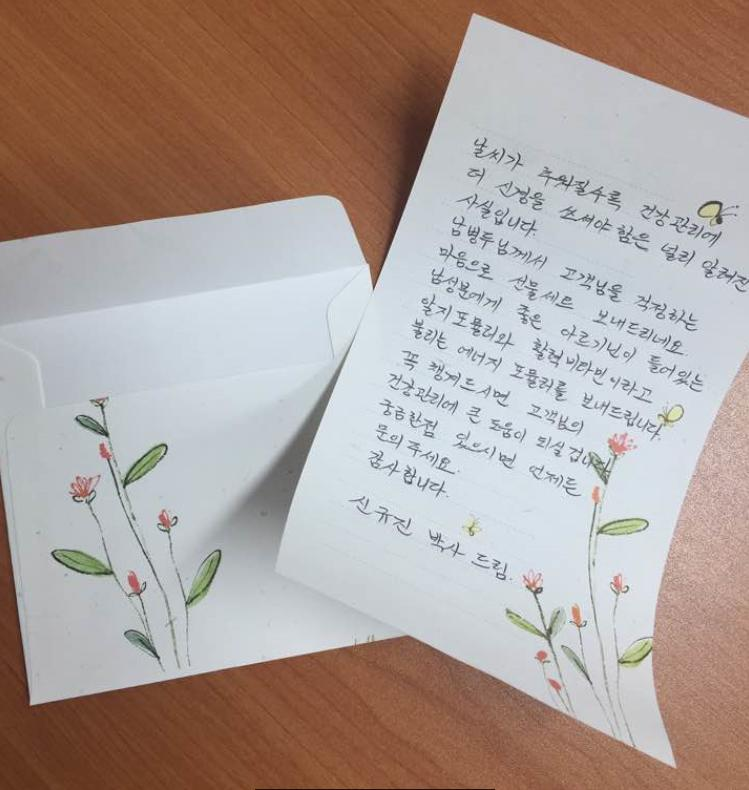 날씨가 추워질수록 건강관리에
더 신경을 쓰셔야 함은 널리 알려진
사실입니다.
남병두님께서 고객님을 걱정하는
마음으로 선물세트 보내드리네요.
남성분에게 좋은 아르기닌이 들어있는
알지포뮬러와 활력비타민이라고
불리는 에너지 포뮬러를 보내드립니다.
꼭 챙겨드시면 고객님의
건강관리에 큰 도움이 되실겁니다.
궁금한점 있으시면 언제든
문의주세요.
감사합니다.
신규진 박사 드림.